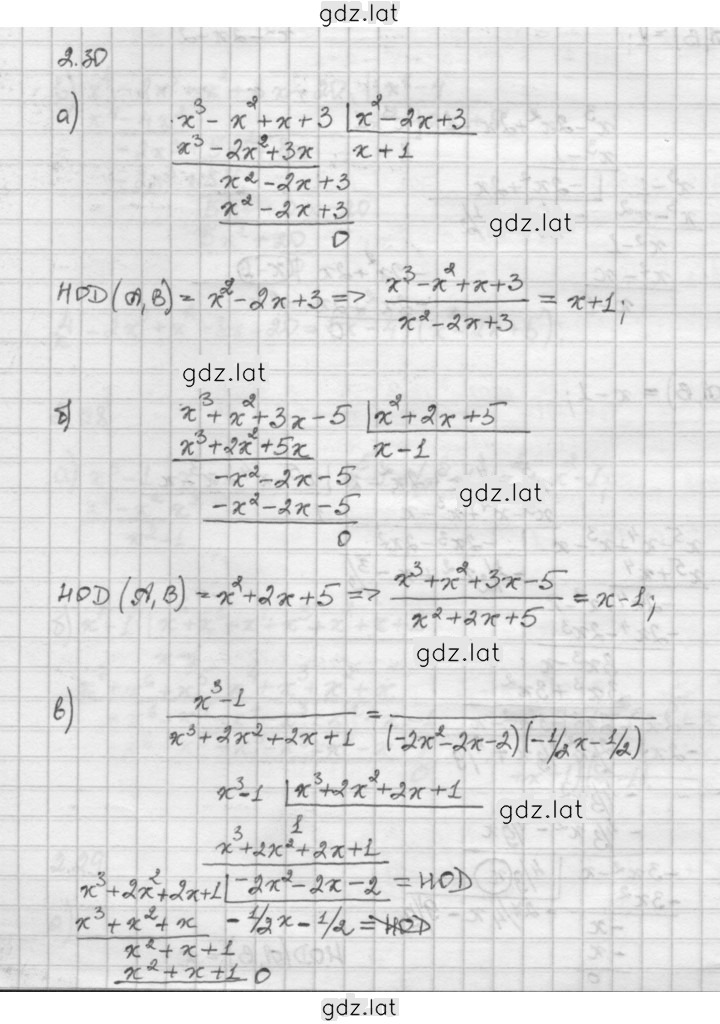 gdz.lat
2.30
а) x³ - x² + x + 3 | x² - 2x + 3
x³ - 2x² + 3x x + 1
x² - 2x + 3
x² - 2x + 3
gdz.lat
0
НОД(A,B) = x² - 2x + 3 => (x³ - x² + x + 3)/(x² - 2x + 3) = x + 1;
gdz.lat
б) x³ + x² + 3x - 5 | x² + 2x + 5
x³ + 2x² + 5x x - 1
-x² - 2x - 5
gdz.lat
-x² - 2x - 5
0
НОД(A,B) = x² + 2x + 5 => (x³ + x² + 3x - 5)/(x² + 2x + 5) = x - 1;
gdz.lat
в) (x³ - 1)/(x³ + 2x² + 2x + 1) = /((-2x² - 2x - 2)(-1/2x - 1/2))
x³ - 1 | x³ + 2x² + 2x + 1
gdz.lat
1
x³ + 2x² + 2x + 1
x³ + 2x² + 2x + 1 | -2x² - 2x - 2 = НОД
x³ + x² + x -1/2x - 1/2 = НОД
x² + x + 1
x² + x + 1 0
gdz.lat